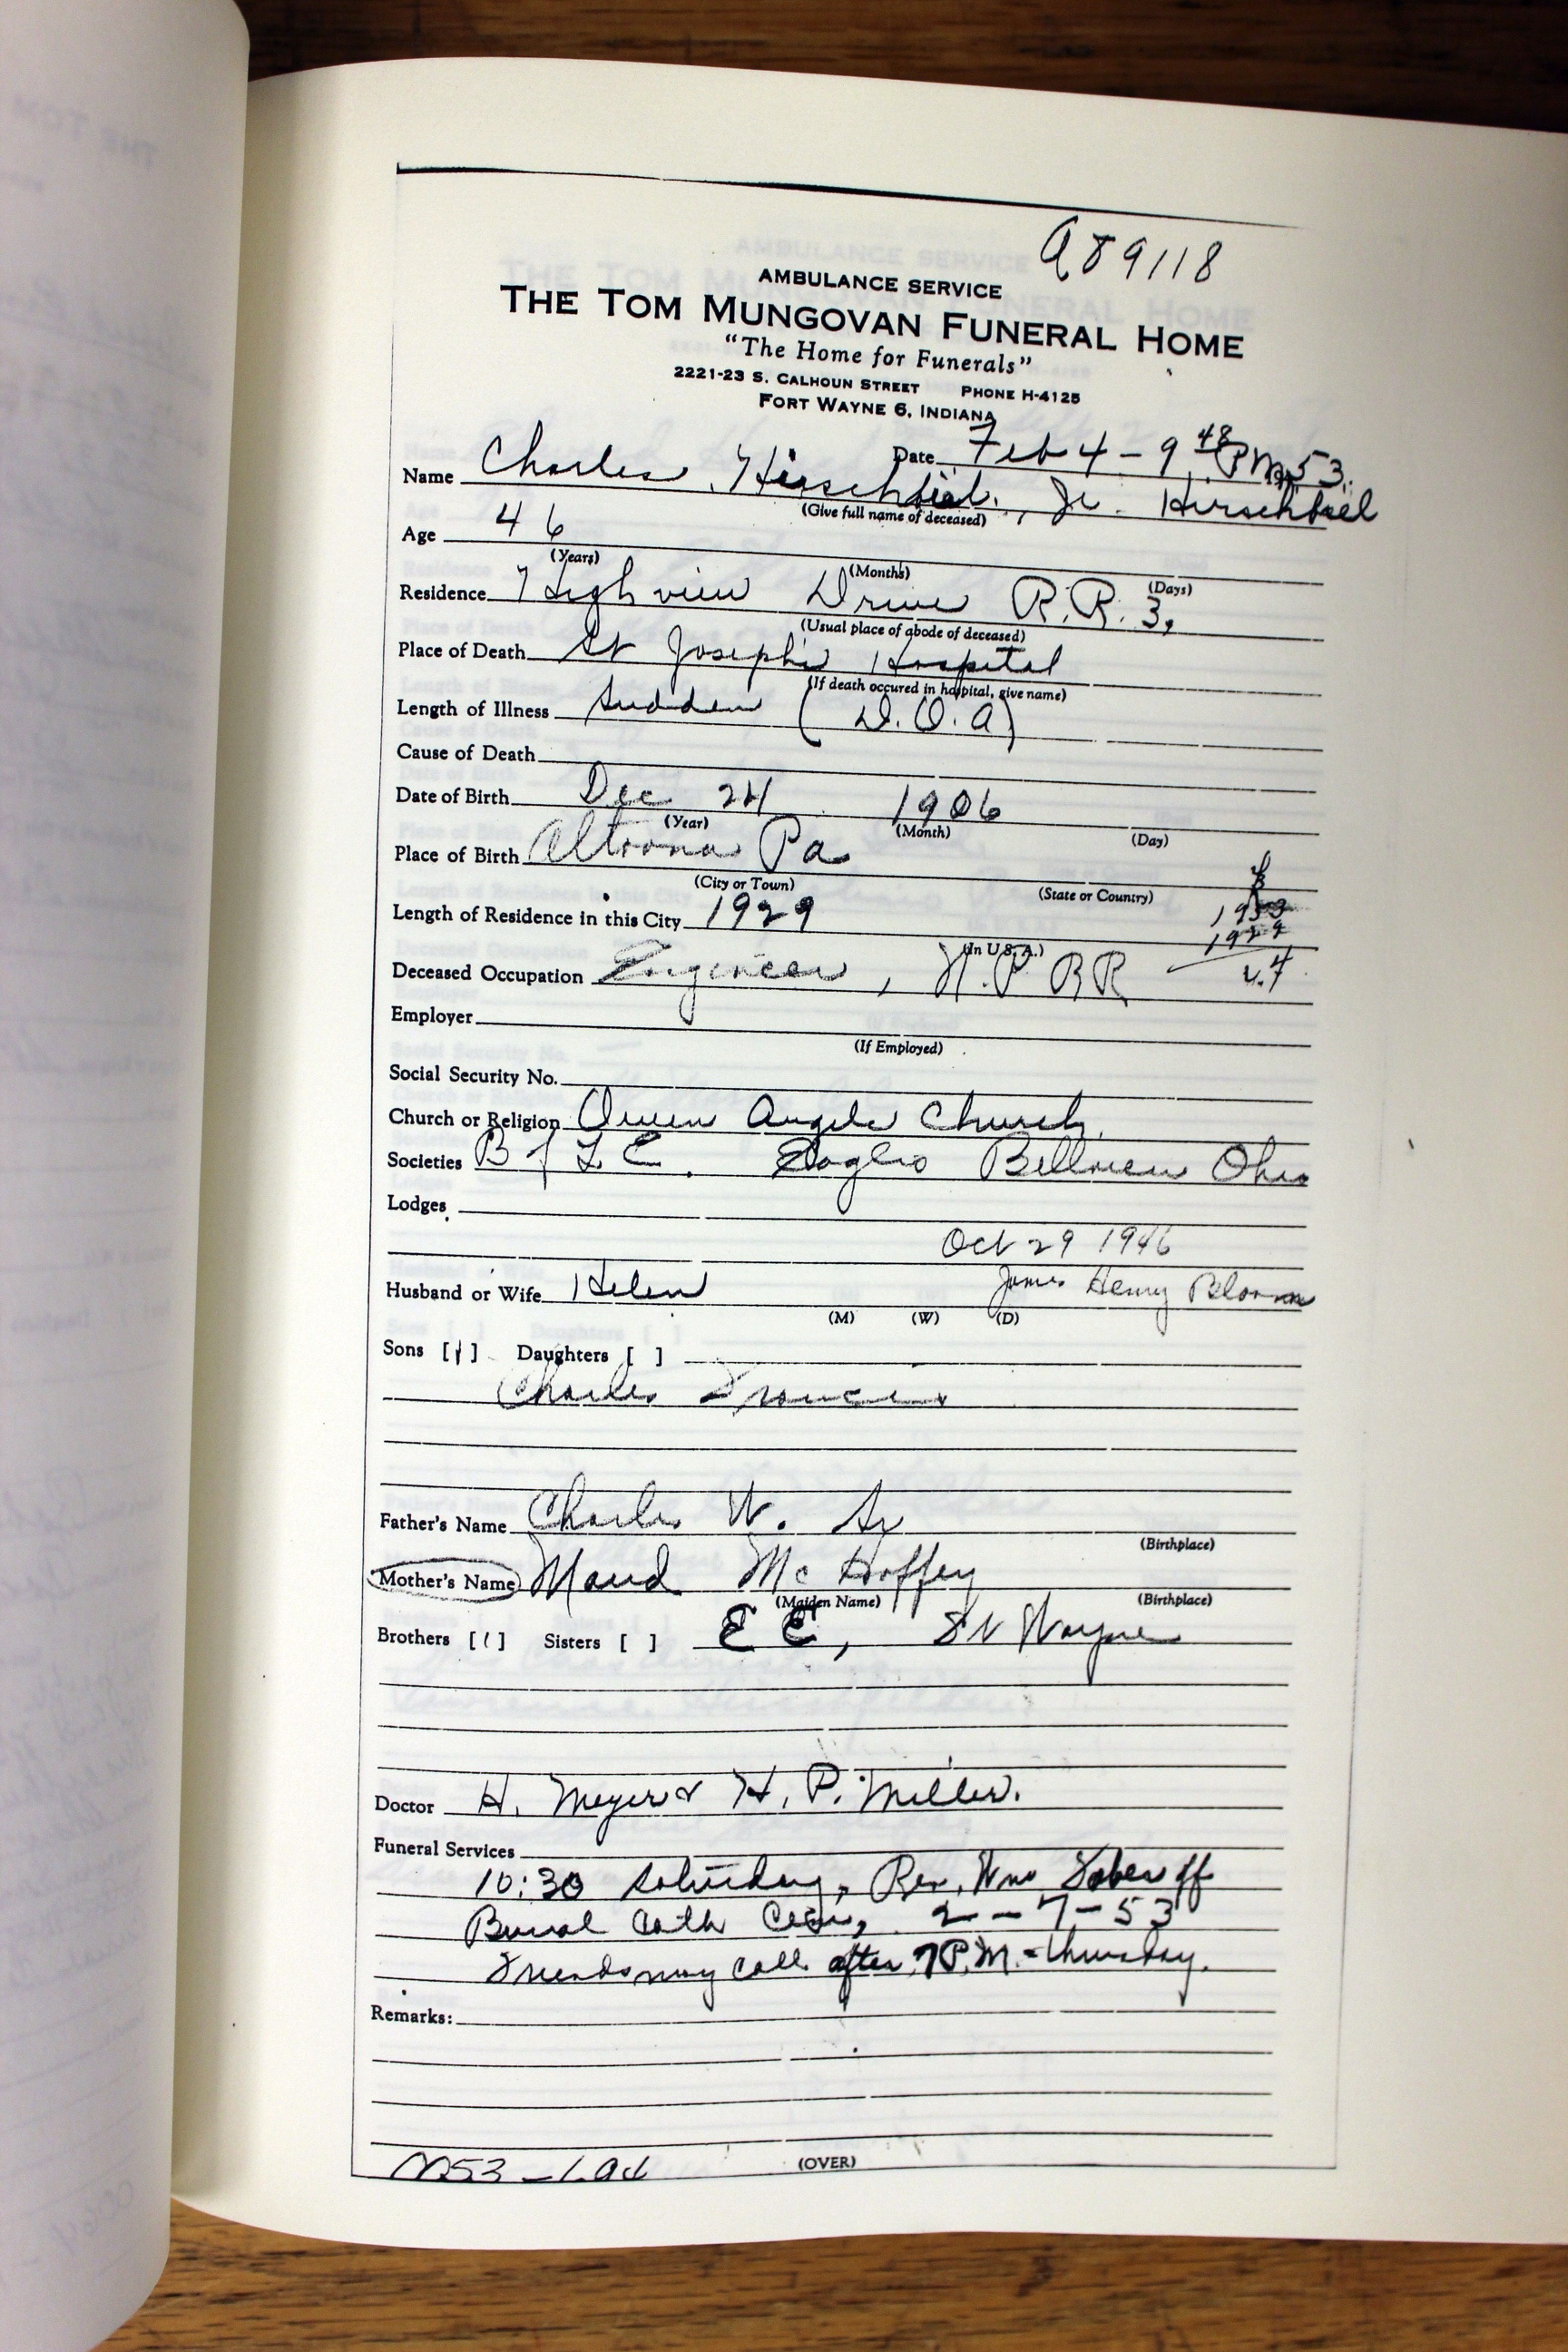 A89118
AMBULANCE SERVICE
THE TOM MUNGOVAN FUNERAL HOME
"The Home for Funerals"
2221-23 S. CALHOUN STREET PHONE H-4125
FORT WAYNE 6, INDIANA
Date Feb 4 - 9 48 P.M. 53.
Name Charles Hirschbiel, Jr. Hirschbiel
(Give full name of deceased)
Age 46
(Years) (Months) (Days)
Residence Highview Drive R.R. 3,
(Usual place of abode of deceased)
Place of Death St Joseph's Hospital
(If death occured in hospital, give name)
Length of Illness Sudden (D.O.A)
Cause of Death
Date of Birth Dec 24 1906
(Year) (Month) (Day)
Place of Birth Altoona Pa
(City or Town) (State or Country)
1953
Length of Residence in this City 1929
1929
(In U.S.A.)
Deceased Occupation Engineer, N.P RR
24
Employer
(If Employed)
Social Security No.
Church or Religion Queen Angels Church.
Societies B of L E. Eagles Bellvue Ohio
Lodges
Oct 29 1946
Husband or Wife Helen James Henry Bloom
(M) (W) (D)
Sons [1] Daughters [ ]
Charles Francis
Father's Name Charles W. Sr
(Birthplace)
Mother's Name Maud Mc Hoffey
(Maiden Name) (Birthplace)
Brothers [1] Sisters [ ] E E, Ft Wayne
Doctor H. Meyer & H. P. Miller.
Funeral Services
10:30 Saturday, Rev. Wm
Burial Cath Cem, 2-7-53
Friends may call after 7 P.M. - Thursday.
Remarks:
(OVER)